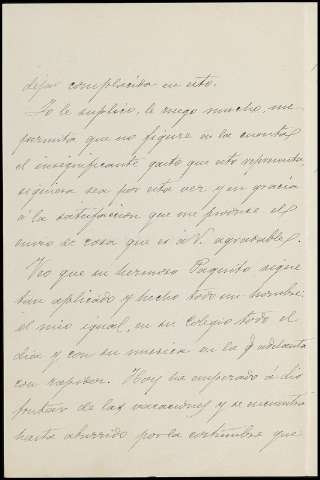 dejar complacida en esto.
Yo le suplico, le ruego mucho, me
permita que no figure en la cuenta
el insignificante gasto que esto representa
siquiera sea por esta vez y en gracia
á la satisfaccion que me produce el
envio de cosa que es á V. agradable.
Veo que su hermoso Paquito sigue
tan aplicado y hecho todo un hombre;
el mio igual, en su Colegio todo el
dia y con su musica en la q adelanta
con rapidez. Hoy ha empezado á dis
frutar de las vacaciones y se encuentra
hasta aburrido por la costumbre que